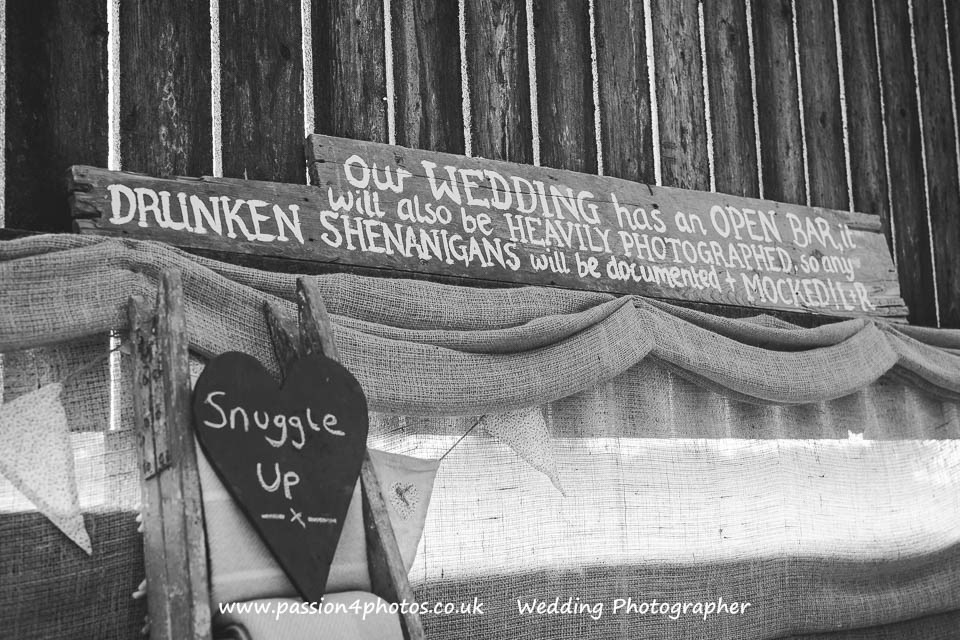 Our WEDDING has an OPEN BAR, it
will also be HEAVILY PHOTOGRAPHED, so any
DRUNKEN SHENANIGANS will be documented + MOCKED l8+R
Snuggle
Up
x
www.passion4photos.co.uk Wedding Photographer